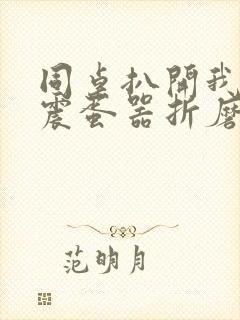 同桌扒開我
震蛋器折磨
范明月